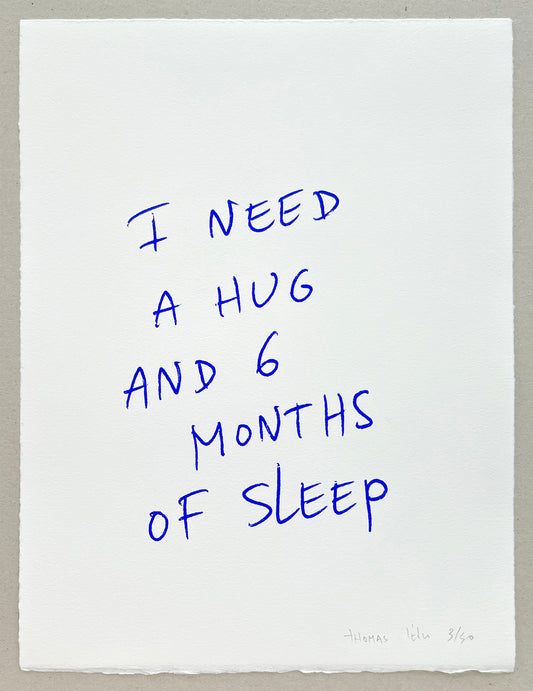 I NEED
A HUG
AND 6
MONTHS
OF SLEEP
THOMAS lélu 3/50